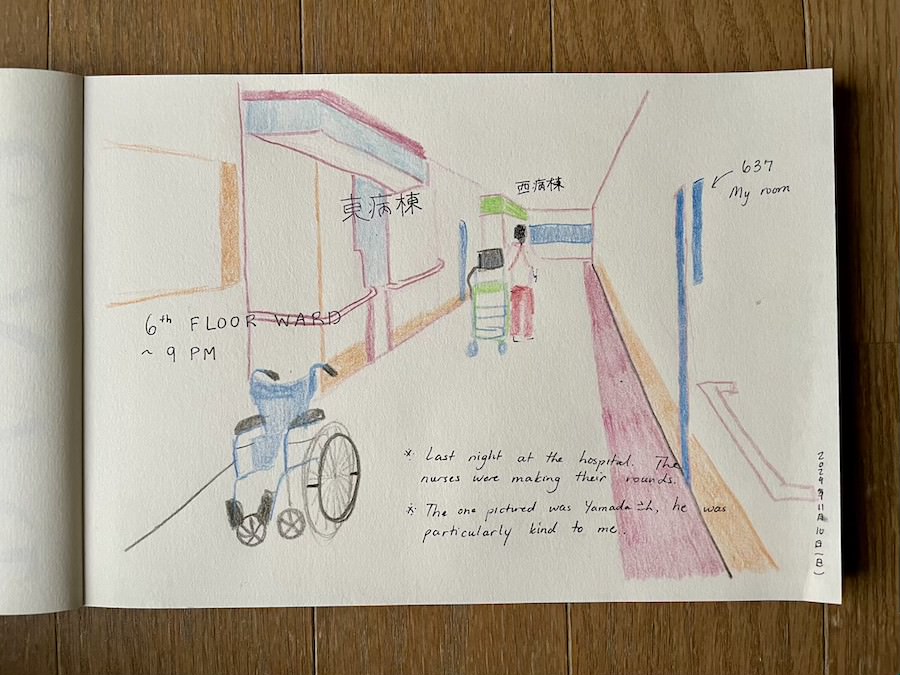 西病棟
637
My room
東病棟
6th FLOOR WARD
~ 9 PM
※ Last night at the hospital. The
nurses were making their rounds.
※ The one pictured was Yamadaさん, he was
particularly kind to me.
2024年11月10日(日)